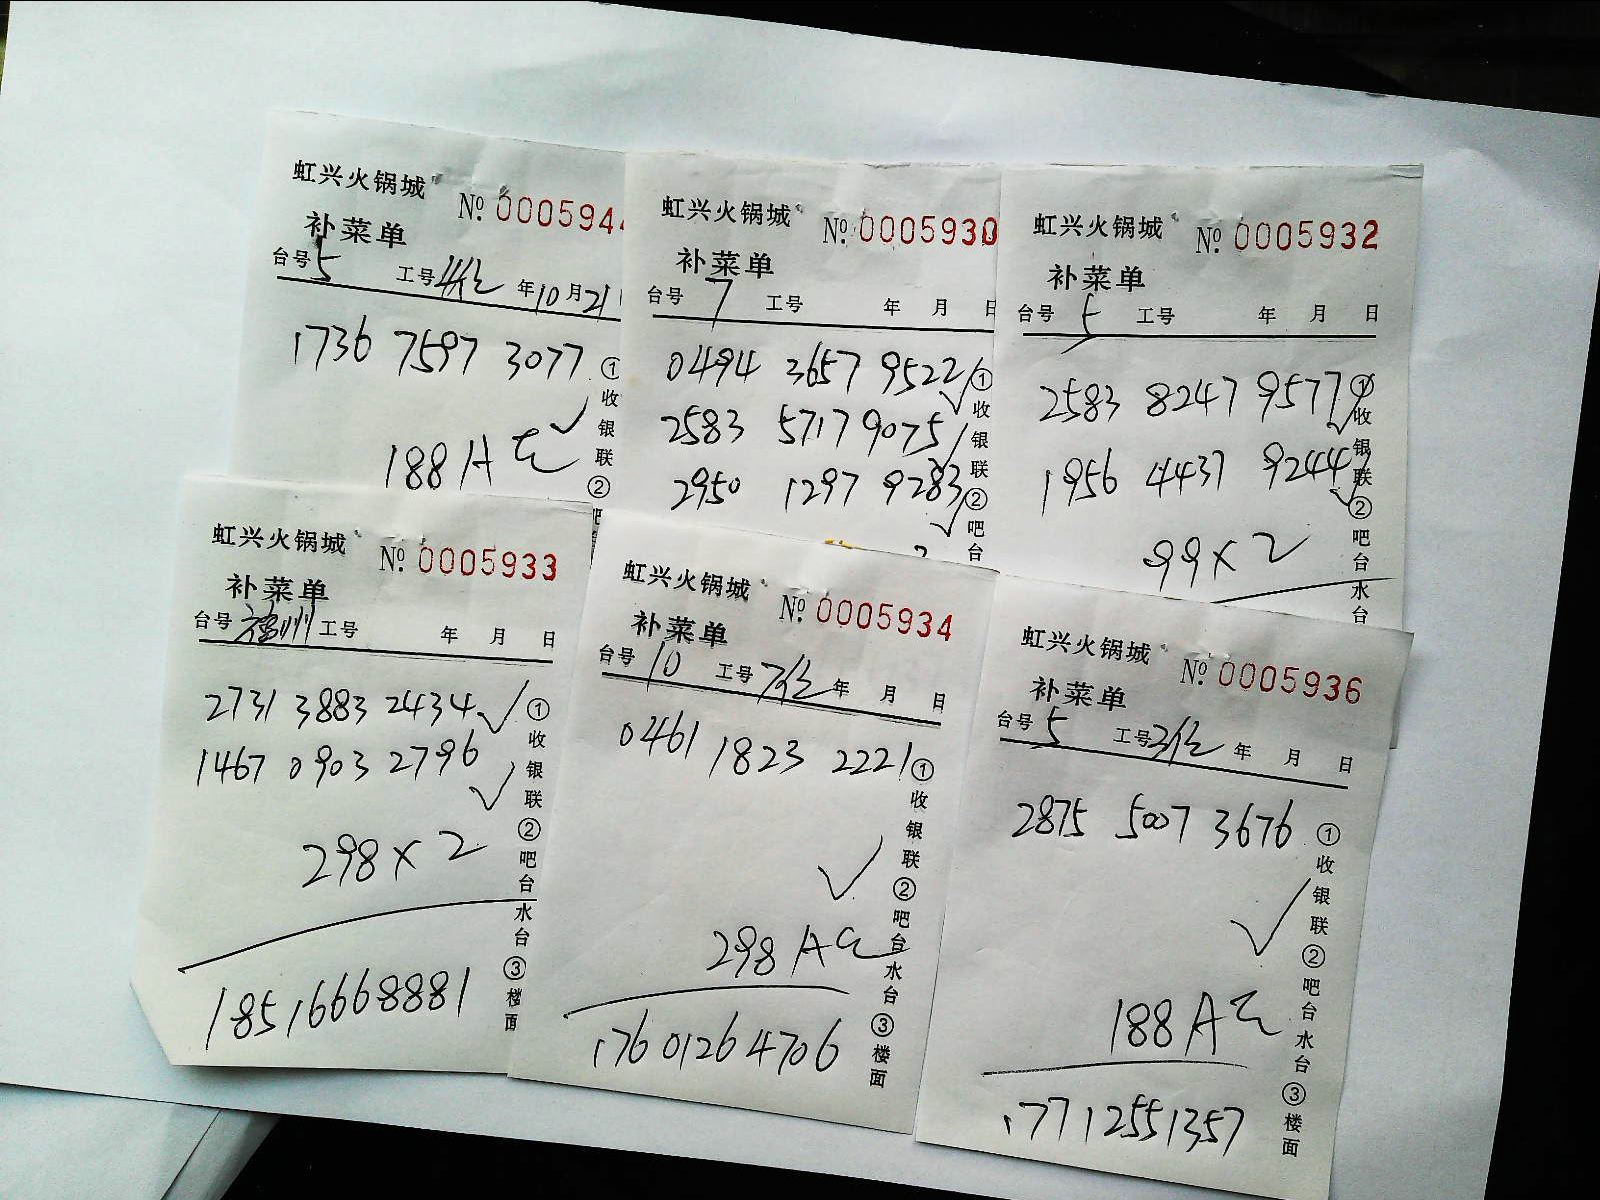 虹兴火锅城 № 0005944
补菜单
台号 5 工号 4位 年 10 月 21
1736 7597 3077
188A
①收银联②吧
虹兴火锅城 № 0005930
补菜单
台号 7 工号 年 月 日
0494 3657 9522
2583 5717 9075
2950 1297 9283
①收银联②吧台
虹兴火锅城 № 0005932
补菜单
台号 5 工号 年 月 日
2583 8247 9577
1956 4437 9244
99×2
①收银联②吧台水台
虹兴火锅城 № 0005933
补菜单
台号 福州 工号 年 月 日
2731 3883 2434
1467 0903 2796
298×2
18516668881
①收银联②吧台水台③楼面
虹兴火锅城 № 0005934
补菜单
台号 10 工号 7位 年 月 日
0461 1823 2221
298A
17601264706
①收银联②吧台水台③楼面
虹兴火锅城 № 0005936
补菜单
台号 5 工号 2位 年 月 日
2875 5007 3676
188A
17712551357
①收银联②吧台水台③楼面